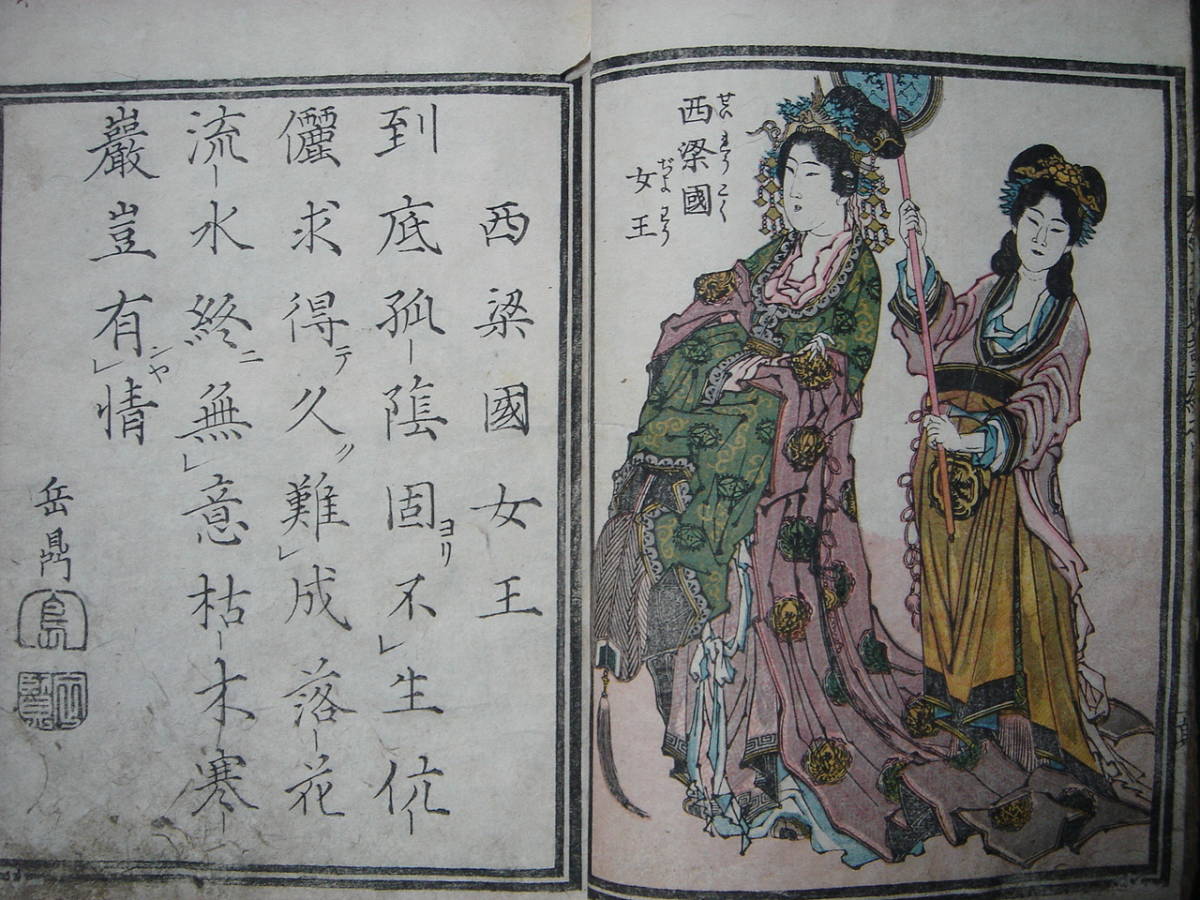 西梁國
女王
ぢよわう
西梁國女王
到底孤陰固ヨリ不生伉
儷求得テ久ク難成落花
流水終ニ無意枯木寒
巖豈有ンヤ情
岳
島